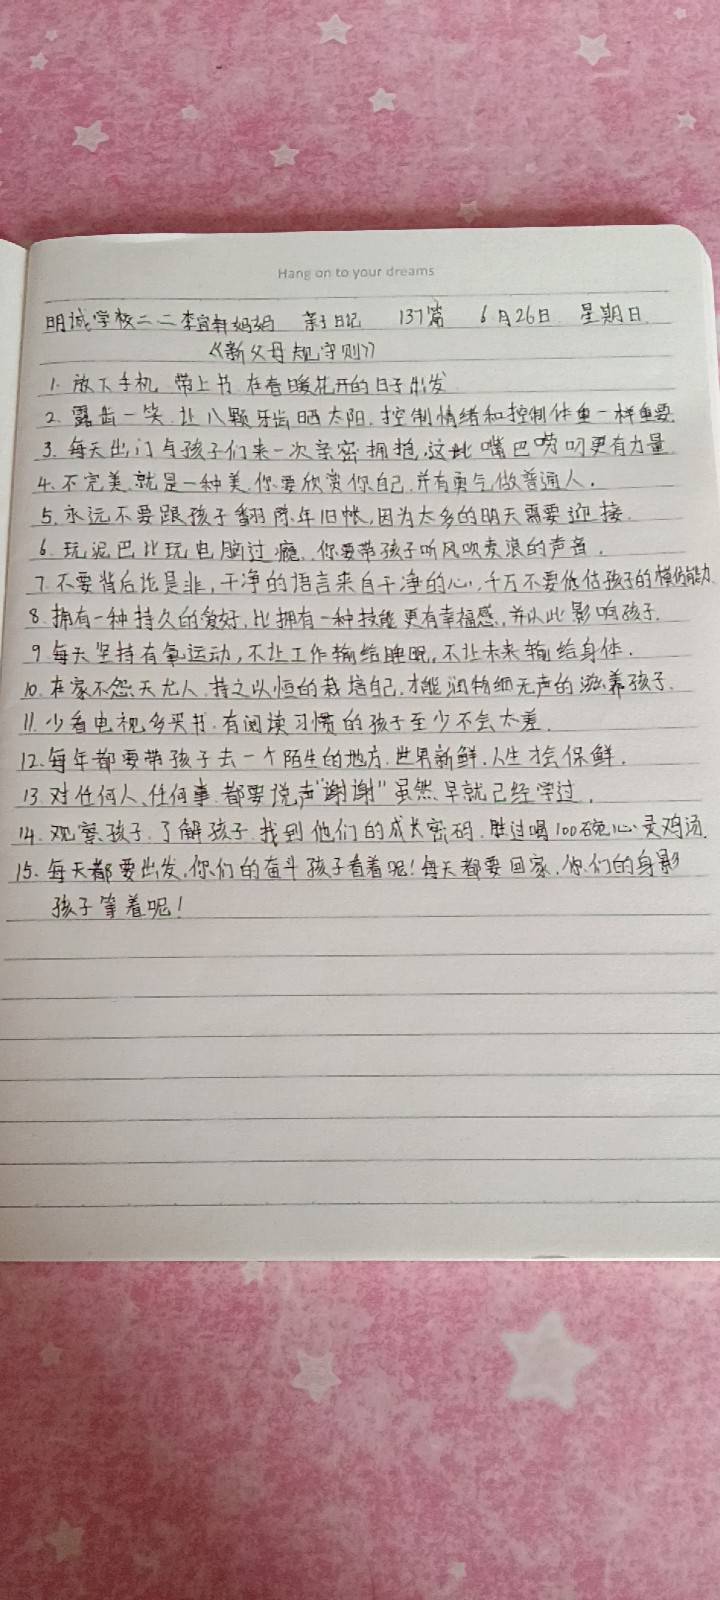 Hang on to your dreams
明诚学校二二李宜轩妈妈 亲子日记 137篇 6月26日 星期日
《新父母规守则》
1. 放下手机 带上书 在春暖花开的日子出发
2. 露齿一笑.让八颗牙齿晒太阳.控制情绪和控制体重一样重要.
3. 每天出门与孩子们来一次亲密拥抱,这比嘴巴唠叨更有力量.
4. 不完美.就是一种美.你要欣赏你自己.并有勇气做普通人.
5. 永远不要跟孩子翻陈年旧帐,因为太多的明天需要迎接.
6. 玩泥巴比玩电脑过瘾.你要带孩子听风吹麦浪的声音.
7. 不要背后论是非,干净的语言来自干净的心,千万不要低估孩子的模仿能力.
8. 拥有一种持久的爱好,比拥有一种技能更有幸福感,并以此影响孩子.
9. 每天坚持有氧运动,不让工作输给睡眠,不让未来输给身体.
10. 在家不怨天尤人.持之以恒的栽培自己.才能润物细无声的滋养孩子.
11. 少看电视多买书.有阅读习惯的孩子至少不会太差.
12. 每年都要带孩子去一个陌生的地方.世界新鲜.人生才会保鲜.
13. 对任何人、任何事.都要说声"谢谢"虽然早就已经学过.
14. 观察孩子.了解孩子.找到他们的成长密码.胜过喝100碗心灵鸡汤.
15. 每天都要出发,你们的奋斗孩子看着呢!每天都要回家.你们的身影
孩子等着呢!